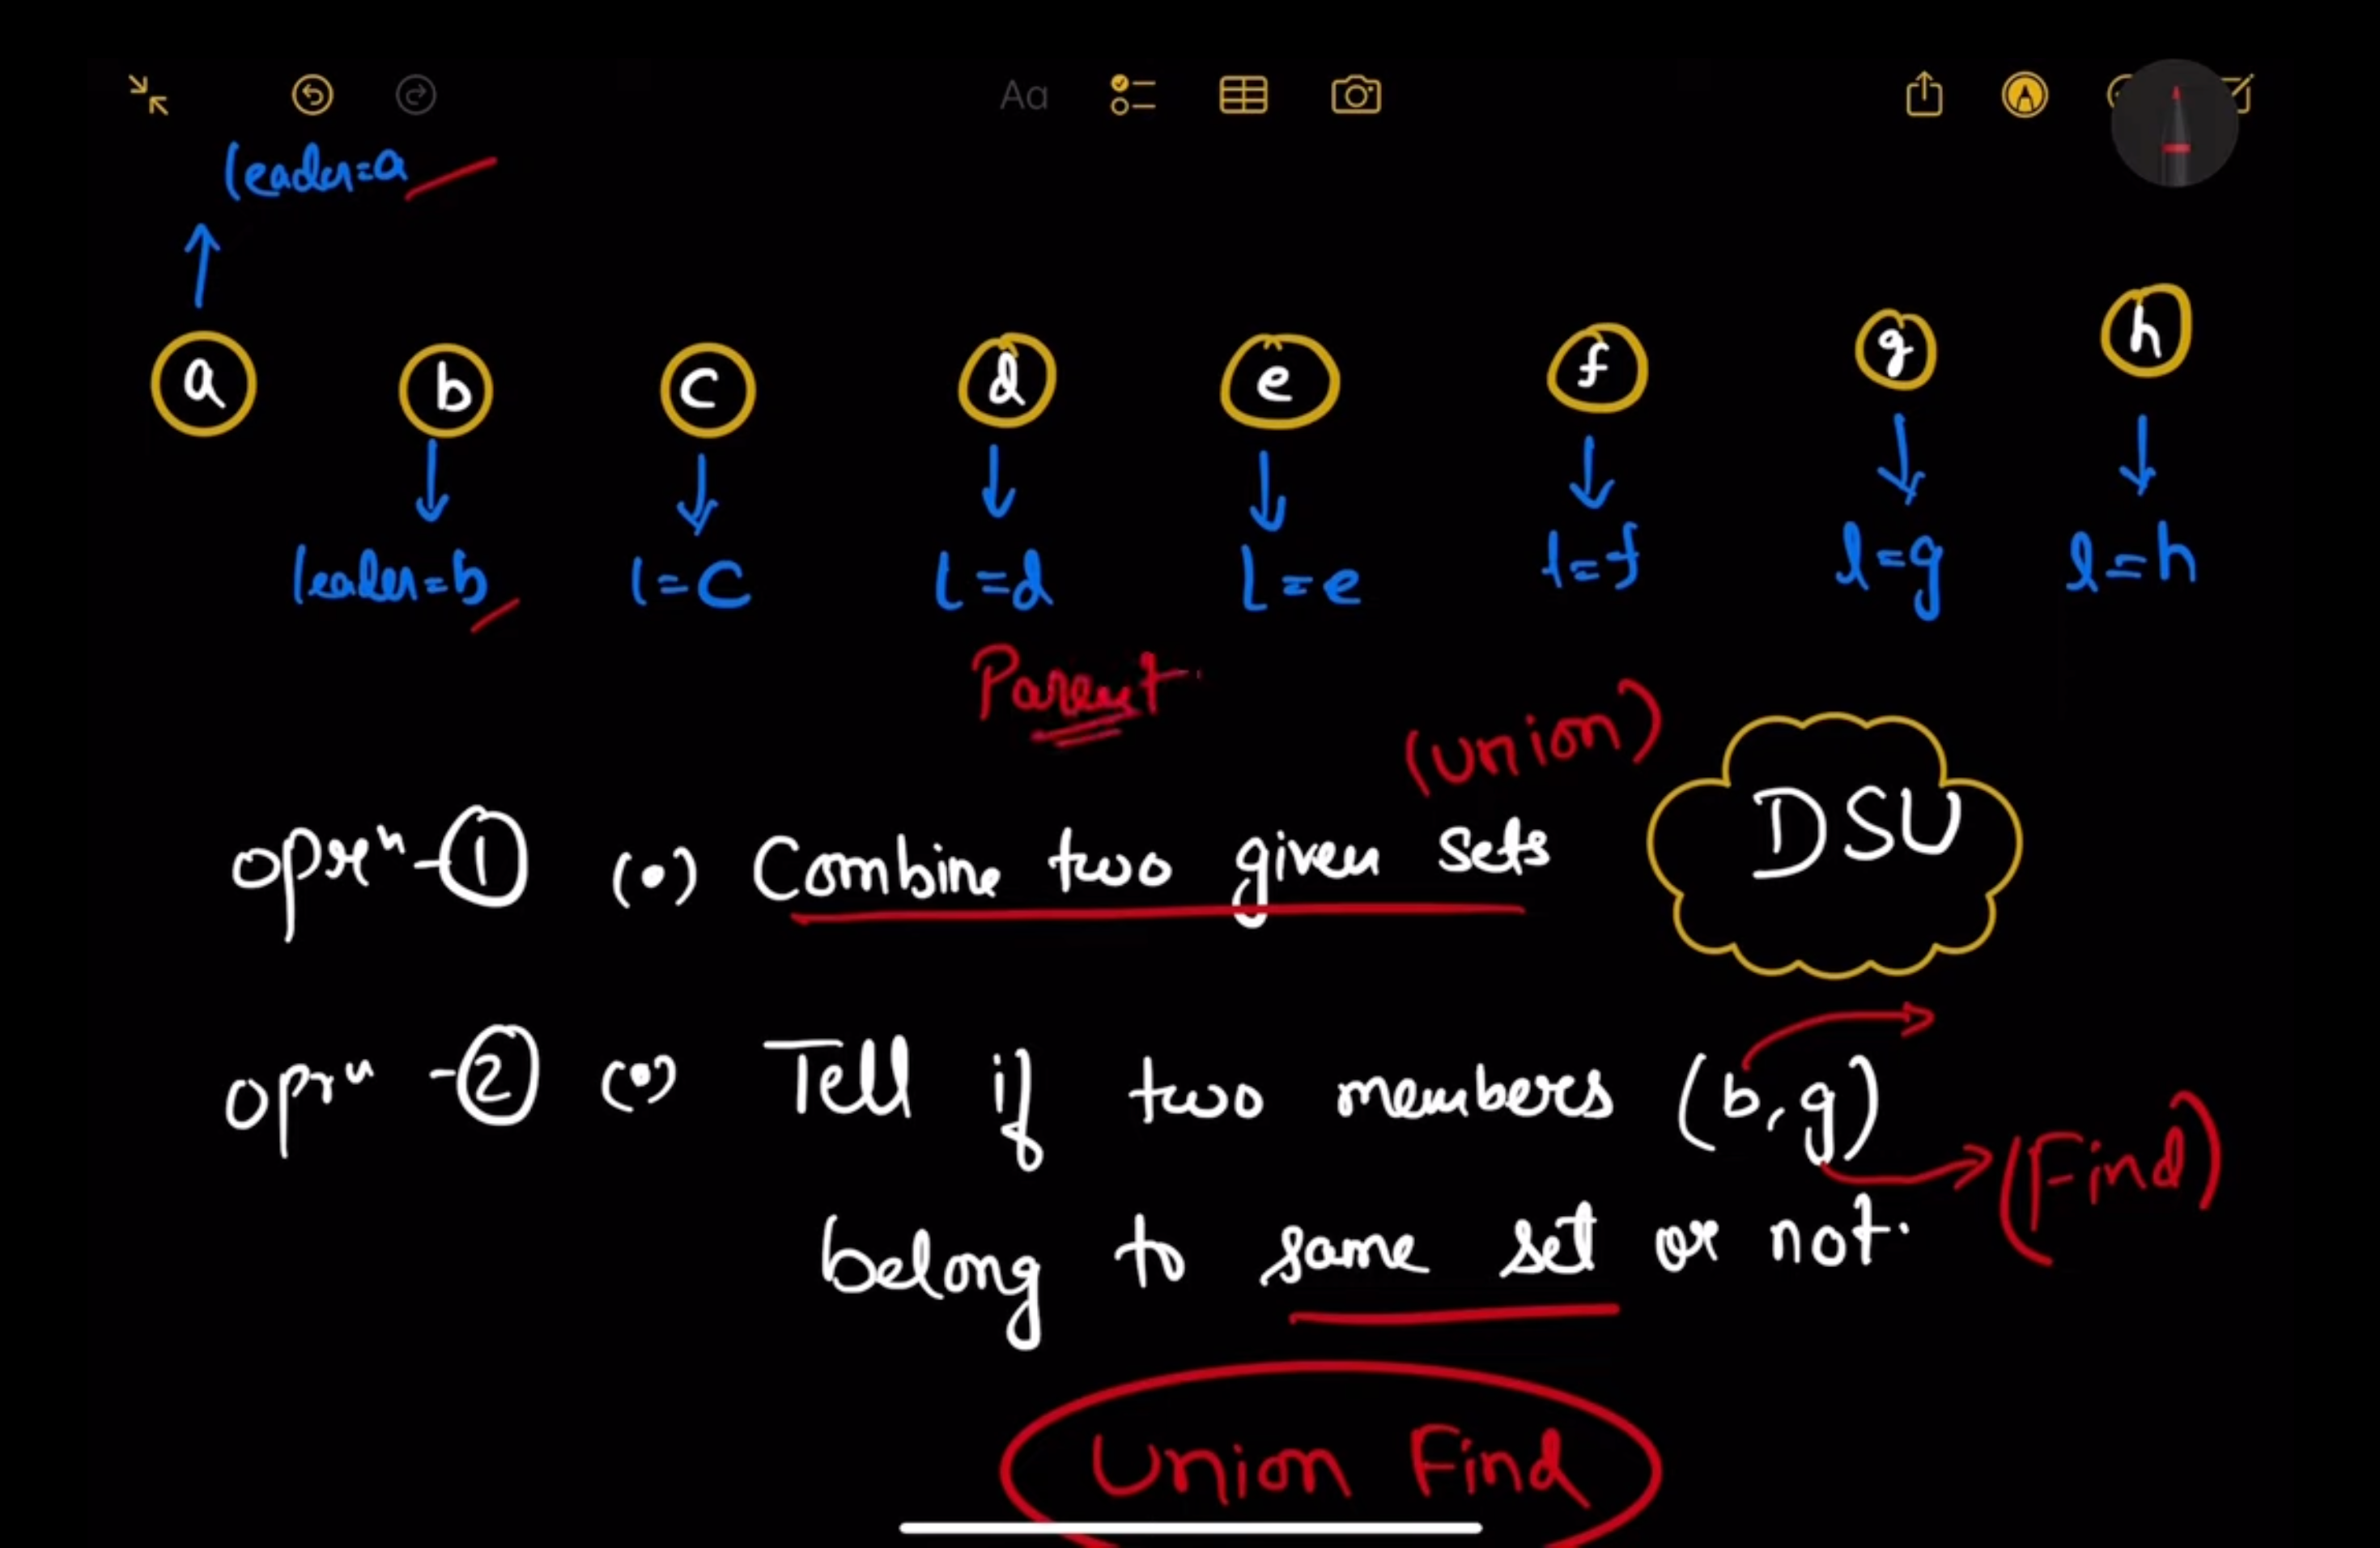 Aa
leader=a
a b c d e f g h
leader=b l=c l=d l=e l=f l=g l=h
Parent
(union)
oprⁿ-① (•) Combine two given sets
DSU
oprⁿ-② (•) Tell if two members (b,g)
(Find)
belong to same set or not.
Union Find